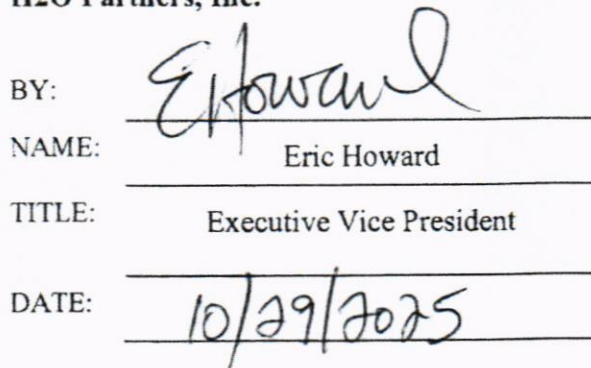 H2O Partners, Inc.
BY: EHoward
NAME: Eric Howard
TITLE: Executive Vice President
DATE: 10/29/2025